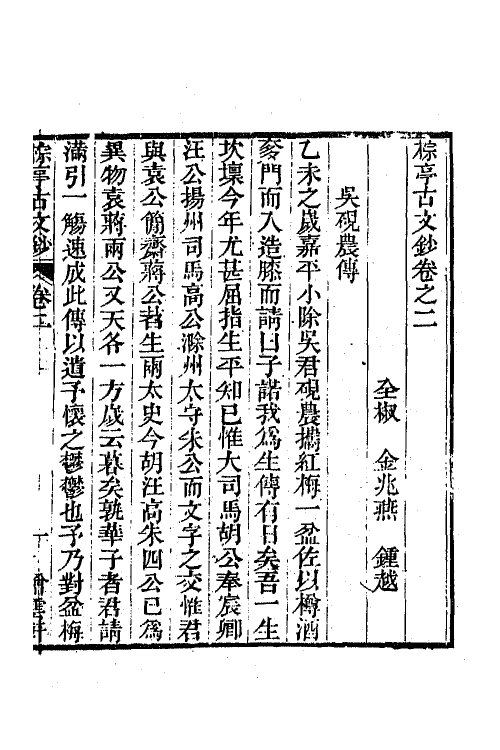 棕亭古文鈔卷之二
全椒　金兆燕　鍾越
吳硯農傳
乙未之歲嘉平小除吳君硯農攜紅梅一盆佐以樽酒
奓門而入造膝而請曰子諾我爲生傳有日矣吾一生
坎壈今年尤甚屈指生平知已惟大司馬胡公奉宸卿
汪公揚州司馬高公滁州太守朱公而文字之交惟君
與袁公簡齋蔣公苕生兩太史今胡汪高朱四公已爲
異物袁蔣兩公又天各一方歲云暮矣孰華子者君請
滿引一觴速成此傳以遣予懷之鬱鬱也予乃對盆梅
棕亭古文鈔　卷二　一